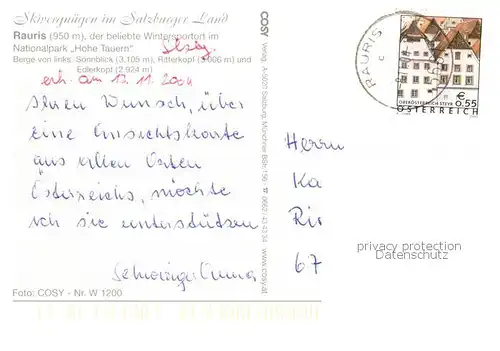 Skivergnügen im Salzburger Land
Rauris (950 m), der beliebte Wintersportort im
Nationalpark „Hohe Tauern"
Berge von links: Sonnblick (3.105 m), Ritterkopf (3.006 m) und
Edlerkopf (2.924 m)
Slzbg.
erh. am 13. 11. 2004
Ihren Wunsch, über
eine Ansichtskarte
aus allen Orten
Österreichs, möchte
ich sie unterstützen
Foto: COSY - Nr. W 1200
COSY Verlag, A-5021 Salzburg, Münchner BStr. 156 ☎ 0662 43 42 34 www.cosy.at
COSY
RAURIS
€ 0,55
OBERÖSTERREICH STEYR
ÖSTERREICH
Herrn
Ka
Rir
67
privacy protection
Datenschutz